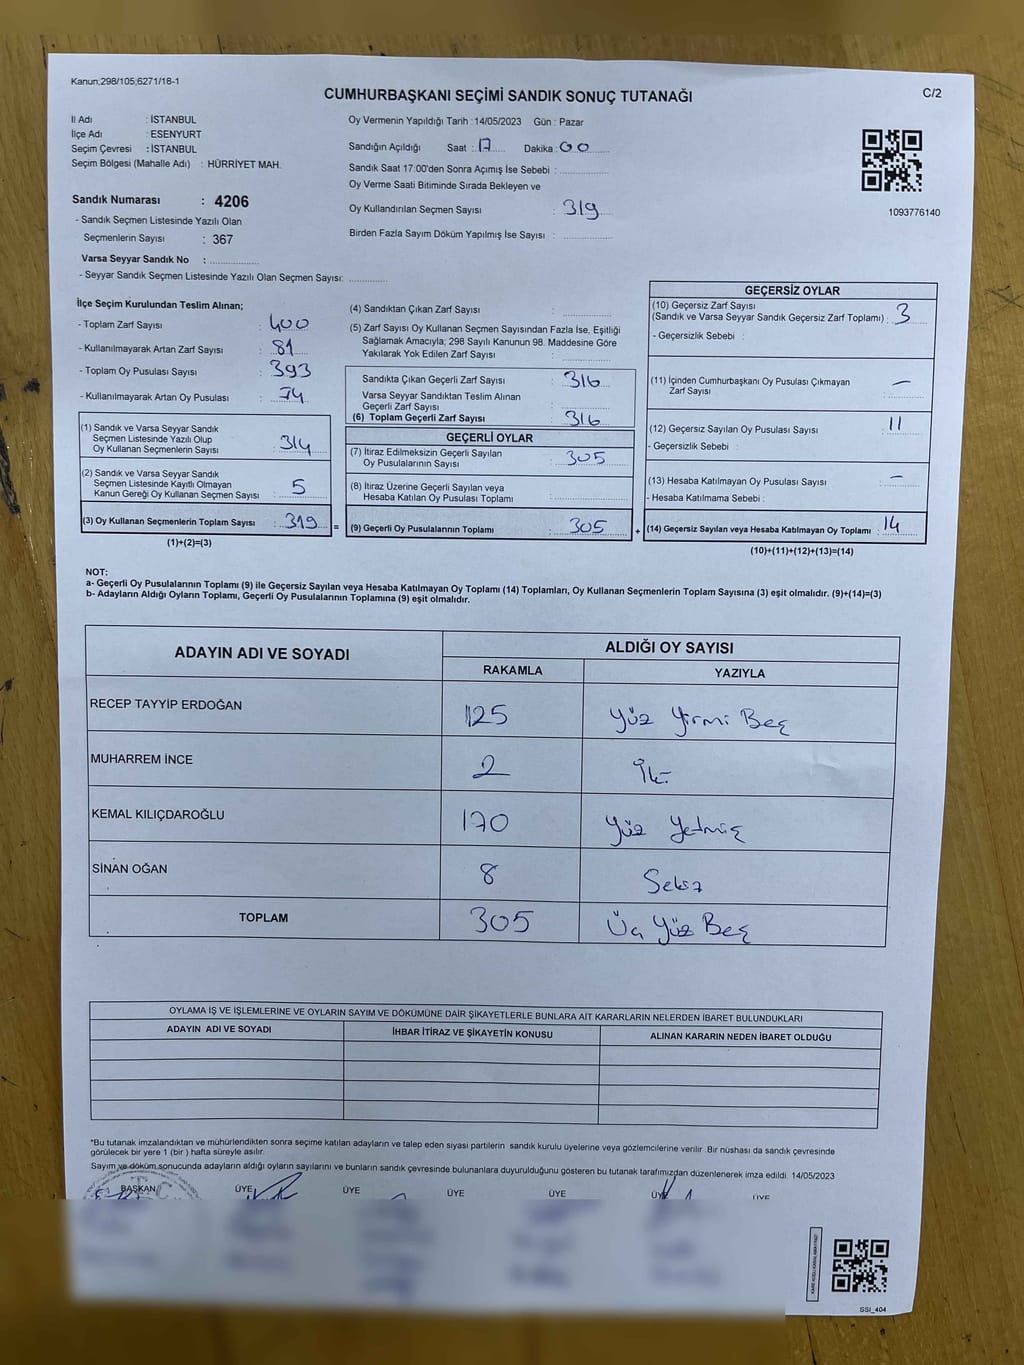 Kanun,298/105,6271/18-1
CUMHURBAŞKANI SEÇİMİ SANDIK SONUÇ TUTANAĞI
C/2
İl Adı : İSTANBUL
İlçe Adı : ESENYURT
Seçim Çevresi : İSTANBUL
Seçim Bölgesi (Mahalle Adı) : HÜRRİYET MAH.
Oy Vermenin Yapıldığı Tarih :14/05/2023 Gün : Pazar
Sandığın Açıldığı Saat : 17 Dakika : 00
Sandık Saat 17:00'den Sonra Açımış İse Sebebi :
Oy Verme Saati Bitiminde Sırada Bekleyen ve
Oy Kullandırılan Seçmen Sayısı : 319
Birden Fazla Sayım Döküm Yapılmış İse Sayısı :
1093776140
Sandık Numarası : 4206
- Sandık Seçmen Listesinde Yazılı Olan
Seçmenlerin Sayısı : 367
Varsa Seyyar Sandık No :
- Seyyar Sandık Seçmen Listesinde Yazılı Olan Seçmen Sayısı:
İlçe Seçim Kurulundan Teslim Alınan;
- Toplam Zarf Sayısı : 400
- Kullanılmayarak Artan Zarf Sayısı : 81
- Toplam Oy Pusulası Sayısı : 393
- Kullanılmayarak Artan Oy Pusulası : 74
(1) Sandık ve Varsa Seyyar Sandık
Seçmen Listesinde Yazılı Olup
Oy Kullanan Seçmenlerin Sayısı : 314
(2) Sandık ve Varsa Seyyar Sandık
Seçmen Listesinde Kayıtlı Olmayan
Kanun Gereği Oy Kullanan Seçmen Sayısı : 5
(3) Oy Kullanan Seçmenlerin Toplam Sayısı : 319 =
(1)+(2)=(3)
(4) Sandıktan Çıkan Zarf Sayısı :
(5) Zarf Sayısı Oy Kullanan Seçmen Sayısından Fazla İse, Eşitliği
Sağlamak Amacıyla; 298 Sayılı Kanunun 98. Maddesine Göre
Yakılarak Yok Edilen Zarf Sayısı :
Sandıkta Çıkan Geçerli Zarf Sayısı : 316
Varsa Seyyar Sandıktan Teslim Alınan
Geçerli Zarf Sayısı :
(6) Toplam Geçerli Zarf Sayısı : 316
GEÇERLİ OYLAR
(7) İtiraz Edilmeksizin Geçerli Sayılan
Oy Pusulalarının Sayısı : 305
(8) İtiraz Üzerine Geçerli Sayılan veya
Hesaba Katılan Oy Pusulası Toplamı :
(9) Geçerli Oy Pusulalarının Toplamı : 305 +
GEÇERSİZ OYLAR
(10) Geçersiz Zarf Sayısı
(Sandık ve Varsa Seyyar Sandık Geçersiz Zarf Toplamı) : 3
- Geçersizlik Sebebi :
(11) İçinden Cumhurbaşkanı Oy Pusulası Çıkmayan
Zarf Sayısı : —
(12) Geçersiz Sayılan Oy Pusulası Sayısı : 11
- Geçersizlik Sebebi :
(13) Hesaba Katılmayan Oy Pusulası Sayısı : —
- Hesaba Katılmama Sebebi :
(14) Geçersiz Sayılan veya Hesaba Katılmayan Oy Toplamı : 14
(10)+(11)+(12)+(13)=(14)
NOT:
a- Geçerli Oy Pusulalarının Toplamı (9) ile Geçersiz Sayılan veya Hesaba Katılmayan Oy Toplamı (14) Toplamları, Oy Kullanan Seçmenlerin Toplam Sayısına (3) eşit olmalıdır. (9)+(14)=(3)
b- Adayların Aldığı Oyların Toplamı, Geçerli Oy Pusulalarının Toplamına (9) eşit olmalıdır.
ADAYIN ADI VE SOYADI
ALDIĞI OY SAYISI
RAKAMLA YAZIYLA
RECEP TAYYİP ERDOĞAN 125 Yüz Yirmi Beş
MUHARREM İNCE 2 İki
KEMAL KILIÇDAROĞLU 170 Yüz Yetmiş
SİNAN OĞAN 8 Sekiz
TOPLAM 305 Üç Yüz Beş
OYLAMA İŞ VE İŞLEMLERİNE VE OYLARIN SAYIM VE DÖKÜMÜNE DAİR ŞİKAYETLERLE BUNLARA AİT KARARLARIN NELERDEN İBARET BULUNDUKLARI
ADAYIN ADI VE SOYADI İHBAR İTİRAZ VE ŞİKAYETİN KONUSU ALINAN KARARIN NEDEN İBARET OLDUĞU
*Bu tutanak imzalandıktan ve mühürlendikten sonra seçime katılan adayların ve talep eden siyasi partilerin sandık kurulu üyelerine veya gözlemcilerine verilir. Bir nüshası da sandık çevresinde
görülecek bir yere 1 (bir ) hafta süreyle asılır.
Sayım ve döküm sonucunda adayların aldığı oyların sayılarını ve bunların sandık çevresinde bulunanlara duyurulduğunu gösteren bu tutanak tarafımızdan düzenlenerek imza edildi. 14/05/2023
BAŞKAN ÜYE ÜYE ÜYE ÜYE ÜYE ÜYE
SSI_404